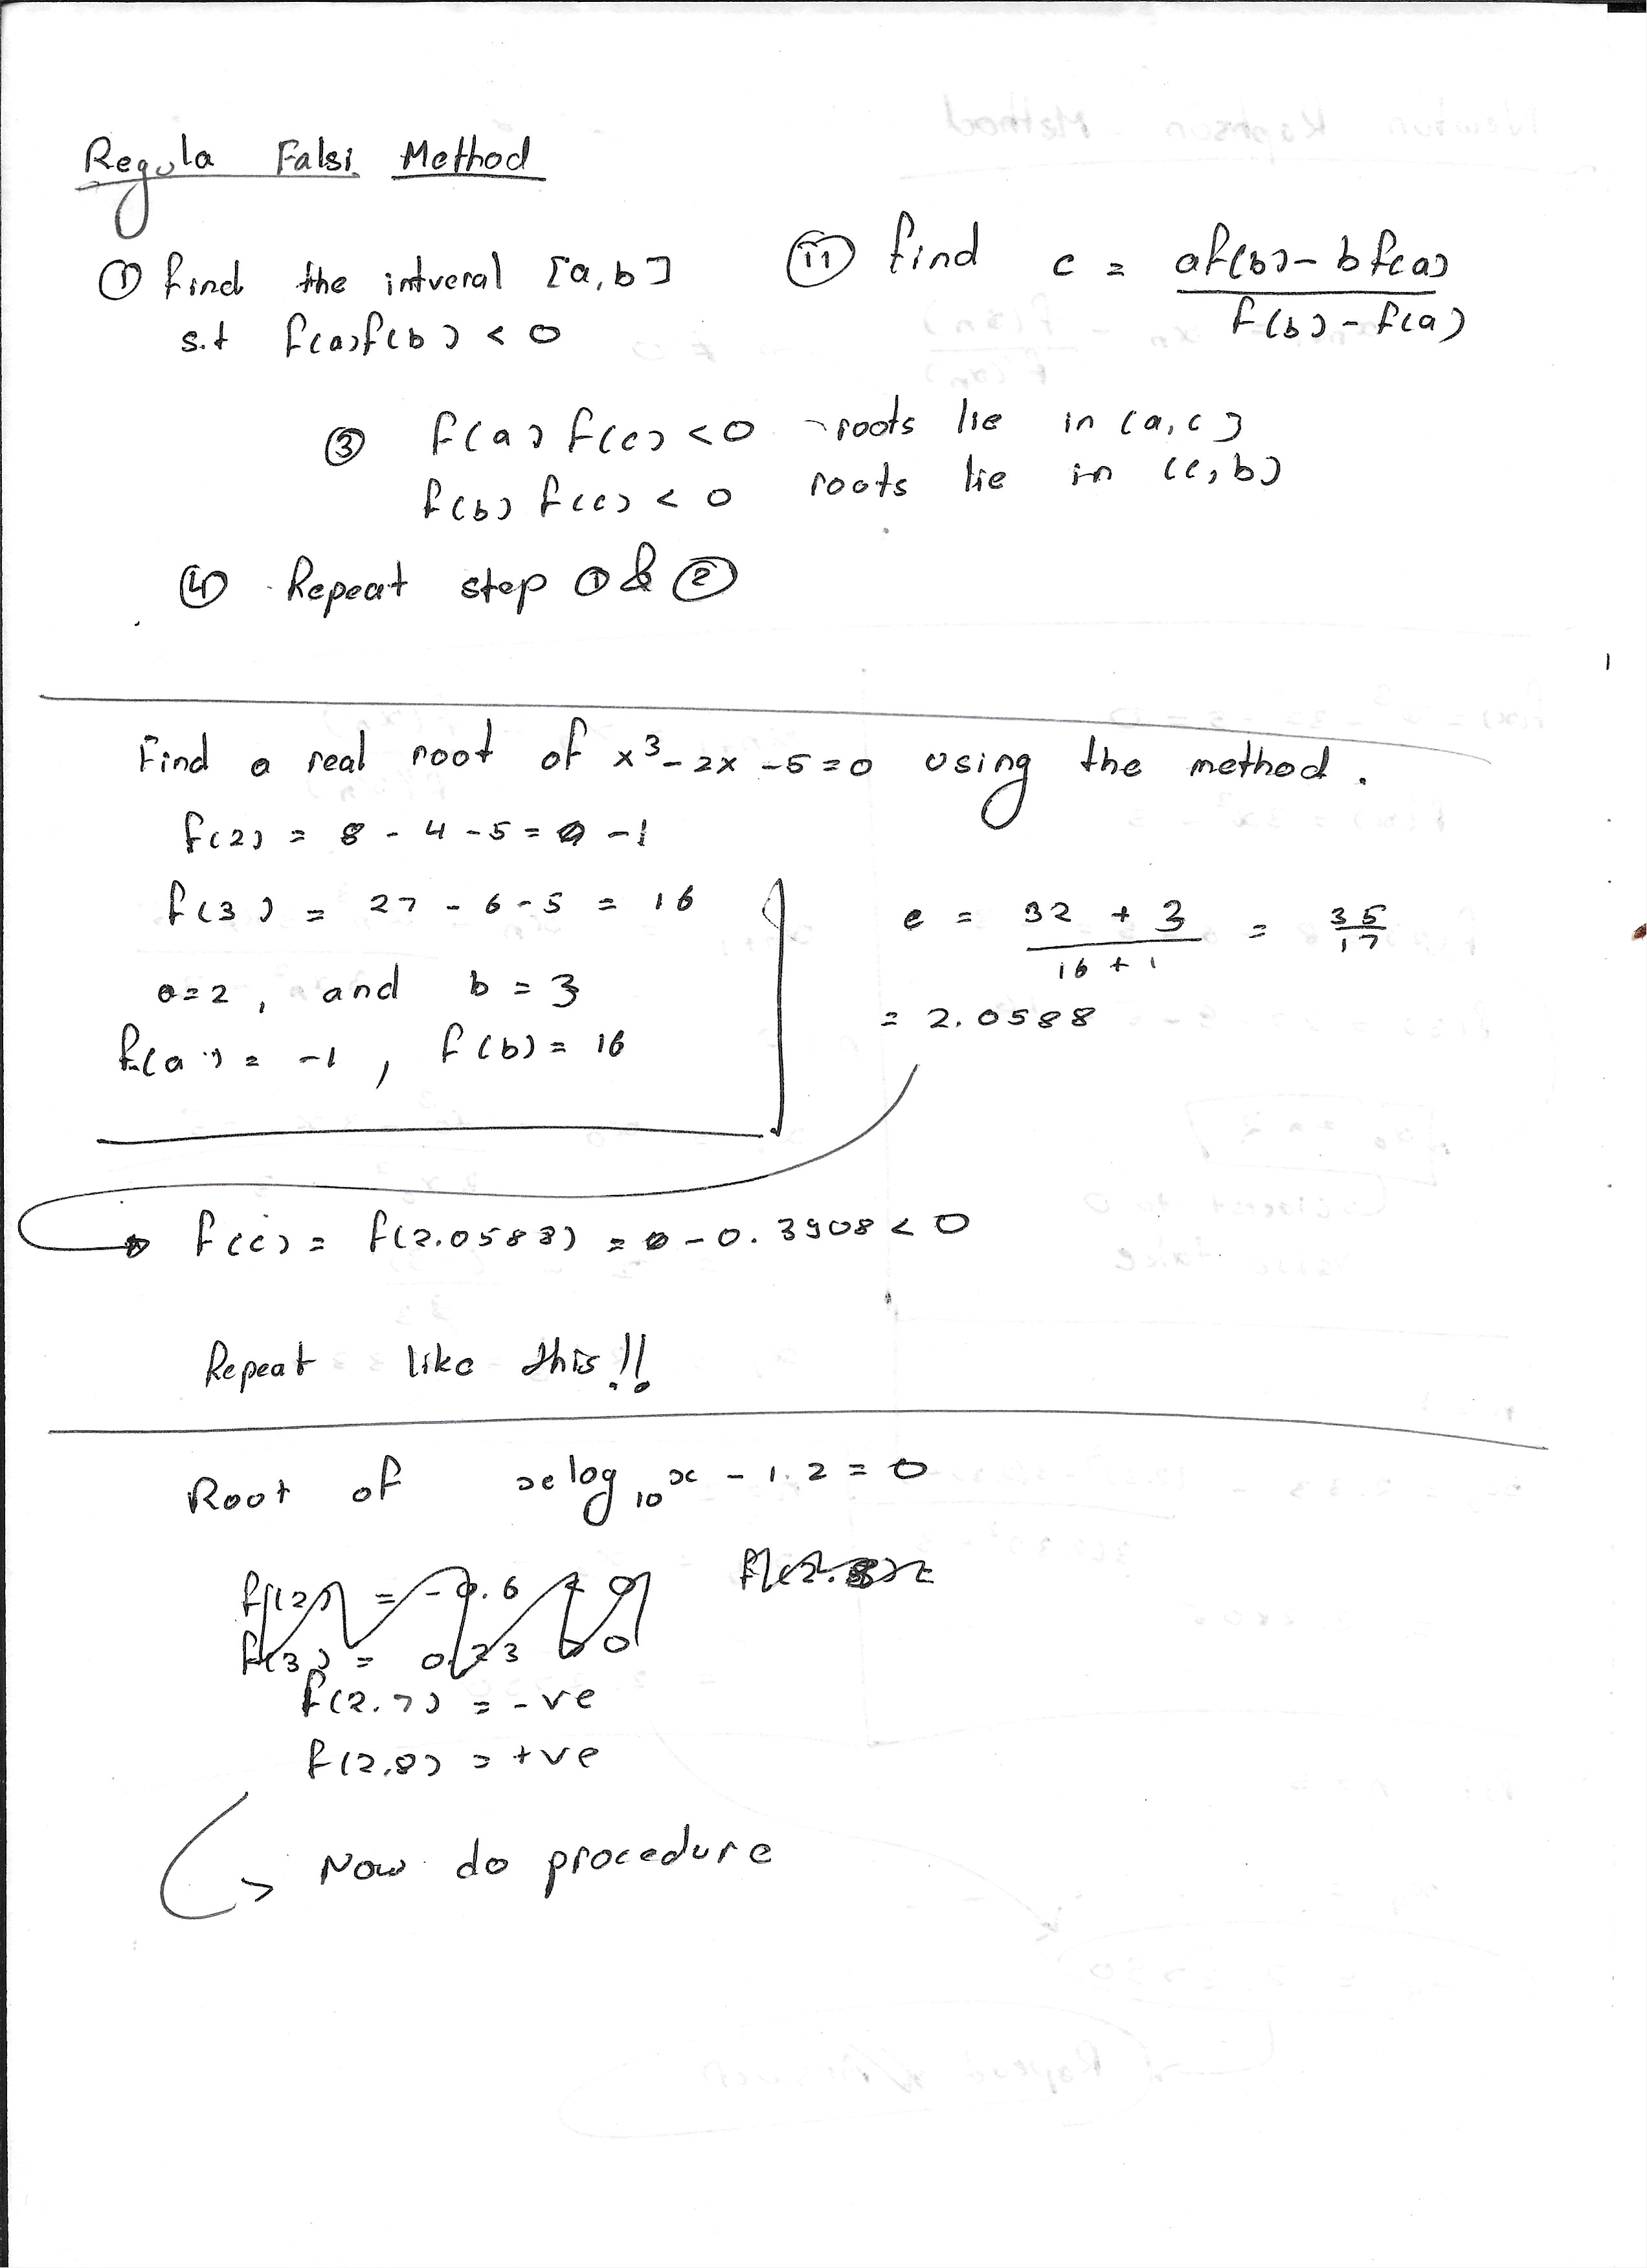 Regula Falsi Method
① find the intveral [a,b]
s.t f(a)f(b) < 0
ⓘⓘ find c = af(b) - bf(a) / f(b) - f(a)
③ f(a) f(c) < 0 → roots lie in (a, c]
f(b) f(c) < 0 roots lie in (c, b)
④ Repeat step ① & ②
Find a real root of x³ - 2x - 5 = 0 using the method.
f(2) = 8 - 4 - 5 = -1
f(3) = 27 - 6 - 5 = 16
a=2, and b = 3
f(a) = -1, f(b) = 16
c = 32 + 3 / 16 + 1 = 35/17
= 2.0588
f(c) = f(2.0588) = -0.3908 < 0
Repeat like this!!
Root of x log₁₀ x - 1.2 = 0
f(2) = -0.6 < 0
f(3) = 0.23 > 0
f(2.7) = -ve
f(2.8) = +ve
Now do procedure